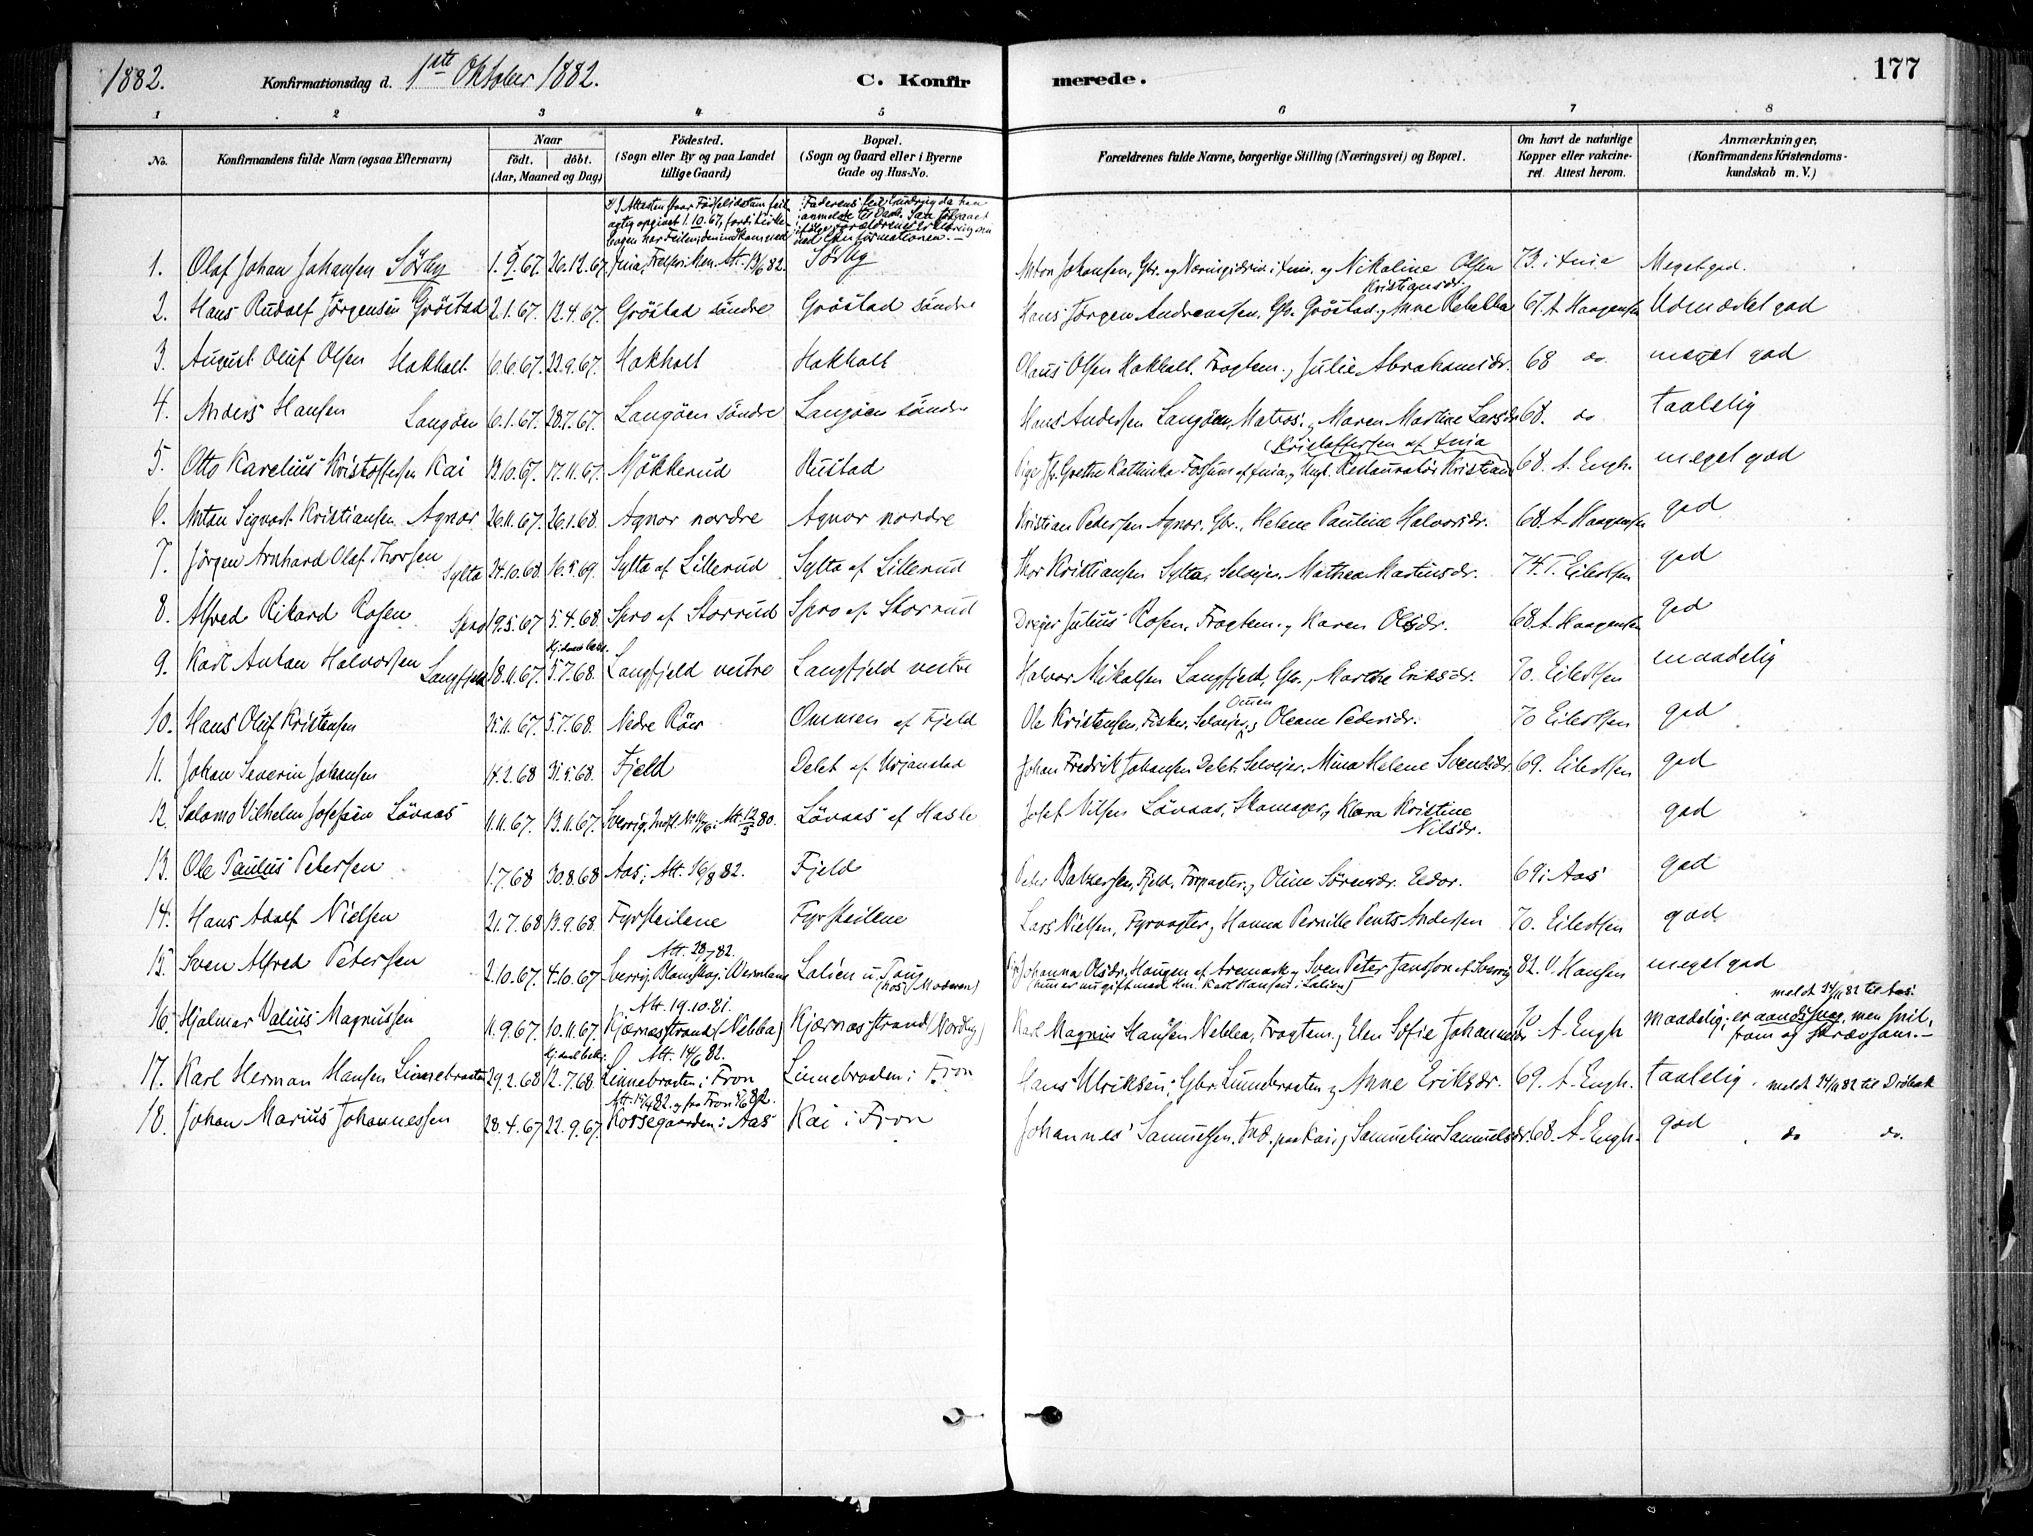 1882. Konfirmationsdag d. 1ste Oktober 1882. C. Konfirmerede. 177
1 2 3 4 5 6 7 8
No. Konfirmandens fulde Navn (ogsaa Efternavn) Naar født. døbt. (Aar, Maaned og Dag) Fødested. (Sogn eller By og paa Landet tillige Gaard) Bopæl. (Sogn og Gaard eller i Byerne Gade og Hus-No. Forældrenes fulde Navne, borgerlige Stilling (Næringsvei) og Bopæl. Om havt de naturlige Kopper eller vakcineret. Attest herom. Anmærkninger. (Konfirmandens Kristendomskundskab m. V.)
1. Olaf Johan Johansen Sørby 1.9.67. 26.12.67. Att. 13/6 82. Sørby Anton Johansen, Gbr. og Nikoline Olsen 73. i Meget god.
2. Hans Rudolf Jørgensen Grøstad 2.1.67. 12.4.67. Grøstad søndre Grøstad søndre Hans Jørgen Andreassen, Gbr. Grøstad, Anne Rebekka Kristiansdr. 67. A. Haagensen Udmærket god
3. August Oluf Olsen Hakhalt 6.6.67. 22.9.67. Hakhalt Hakhalt Olaus Olsen Hakhalt. Fragtem., Julie Abrahamsdr. 68 do meget god
4. Anders Hansen Langøen 6.1.67. 28.7.67. Langøen søndre Langøen søndre Hans Andersen Langøen, Matros, Maren Martine Larsdr 68. do taalelig
5. Otto Karelius Kristoffersen Kai 13.10.67. 17.11.67. Møkkerud Rustad Pige Grethe Kathinka Restauratør Kristian Kristoffersen af 68. A. Engh. meget god
6. Anton Sigvart Kristiansen Agnor 26.11.67. 26.1.68. Agnor nordre Agnor nordre Kristian Petersen Agnor. Gbr., Helene Pauline Halvorsdr. 68. A. Haagensen god
7. Jørgen Arnhard Olaf Thorsen Sylta 24.10.68. 16.5.69. Sylta af Lillerud Sylta af Lillerud Thor Kristiansen Sylta, Selveier. Mathea Martinsdr. 74. T. Eilertsen god
8. Alfred Rikard Rosen Spro 19.5.67 5.4.68. Spro af Storrud Spro af Storrud Drejer Julius Rosen, Fragtem., Karen Olsdr. 68 A. Haagensen god
9. Karl Anton Halvorsen Langfjeld 18.11.67. 5.7.68. Langfjeld vestre Langfjeld vestre Halvor Mikalsen Langfjeld, Gbr., Marthe Eriksdr. 70. Eilertsen maadelig
10. Hans Oluf Kristensen 25.11.67. 5.7.68. Nedre Røer Ommen af Fjeld Ole Kristensen, Fisker, Selveier, Oleane Pedersdr. 70 Eilertsen god
11. Johan Severin Johansen 14.2.68 31.5.68. Fjeld Delet af Urjansted Johan Fredrik Johansen Delet, Selveier, Mina Helene Svendsdr. 69. Eilertsen god
12. Salomo Vilhelm Josefsen Løvaas 11.11.67. 13.11.67. Sverrig, Att. 12/5 80. Løvaas af Hasle Josef Nilsen Løvaas, Skomager, Klara Kristine Nilsdr. god
13. Ole Paulus Petersen 1.7.68 30.8.68 Aas; Att. 16/8 82. Fjeld Peter Balzersen, Fjeld, Forpagter, Oline Sørensdr. 69 i Aas god
14. Hans Adolf Nielsen 21.7.68 13.9.68. Fyrsteilene Fyrsteilene Lars Nielsen, Fyrvogter, Hanna Pernille Andersen 70. Eilertsen god
15. Sven Alfred Petersen 2.10.67. 4.10.67 Att. 28/7 82. Sverrig, Wermland Lalien u/ Taug (hos Moderen) Johanna Olsdr. Haugen af Aremark, Sven Peter Jansson af Sverrig (hun er nu gift med Karl Hansen i Lalien) 82. V. Hansen meget god
16. Hjalmar Valius Magnussen 11.9.67. 10.11.67. Att. 19.10.81. Kjærnesstrand (Nebba) Kjærnesstrand (Nordby) Karl Magnus Hansen Nebba, Fragtem., Elen Sofie Johannesdr 70 A. Engh maadelig; er aandssvag, men snil, from og stræbsom. meldt 24/11 82 til Aas.
17. Karl Herman Hansen Linnebraaten 29.2.68 12.7.68. Att. 14/6 82. Linnebraaten i Fron Linnebraaten i Fron Hans Ulriksen, Gbr. Linnebraaten, Anne Eriksdr. 69. A. Engh. taalelig. meldt 24/11 82 til Drøbak
18. Johan Marius Johannessen 28.4.67 22.9.67. Korsegaarden i Aas Kai i Fron Johannes Samuelsen. Ind. paa Kai, Samueline Samuelsdr. 68. A. Engh. god. do do.